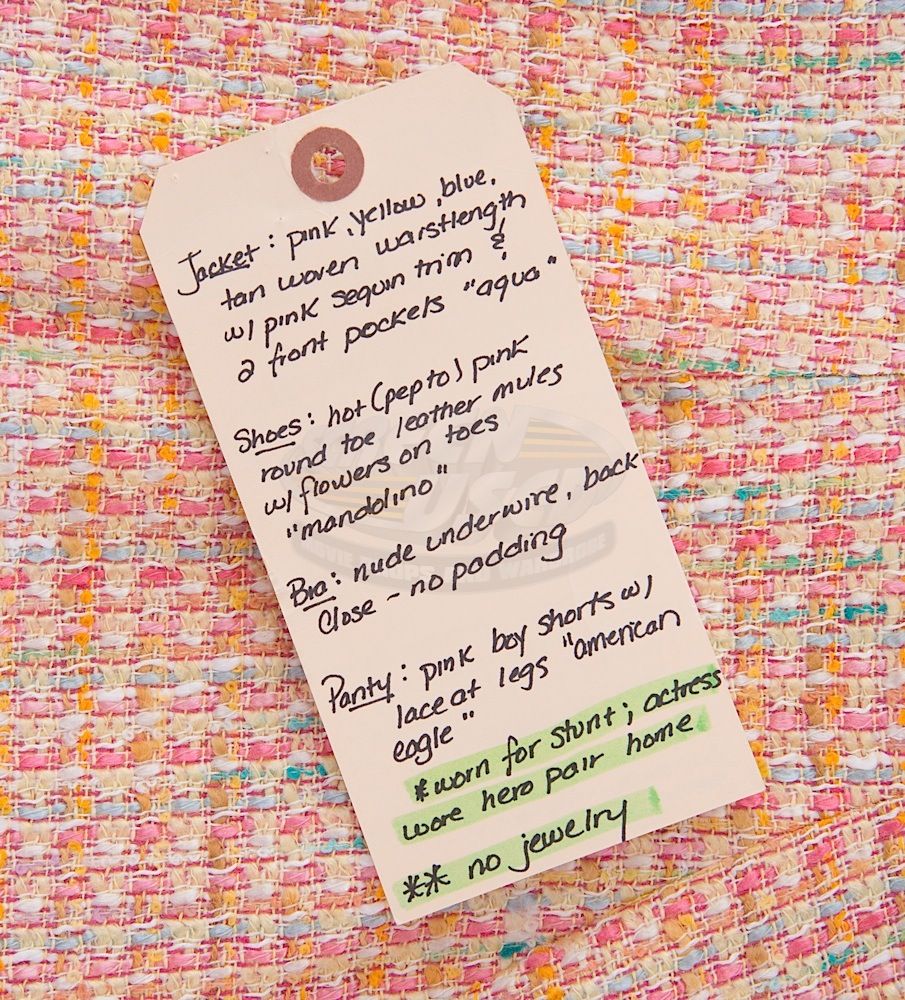 Jacket: pink, yellow, blue,
tan woven waistlength
w/ pink sequin trim &
2 front pockets "aqua"
Shoes: hot (pepto) pink
round toe leather mules
w/ flowers on toes
"mandolino"
Bra: nude underwire, back
Close - no padding
Panty: pink boy shorts w/
lace at legs "american
eagle"
*worn for stunt; actress
wore hero pair home
** no jewelry